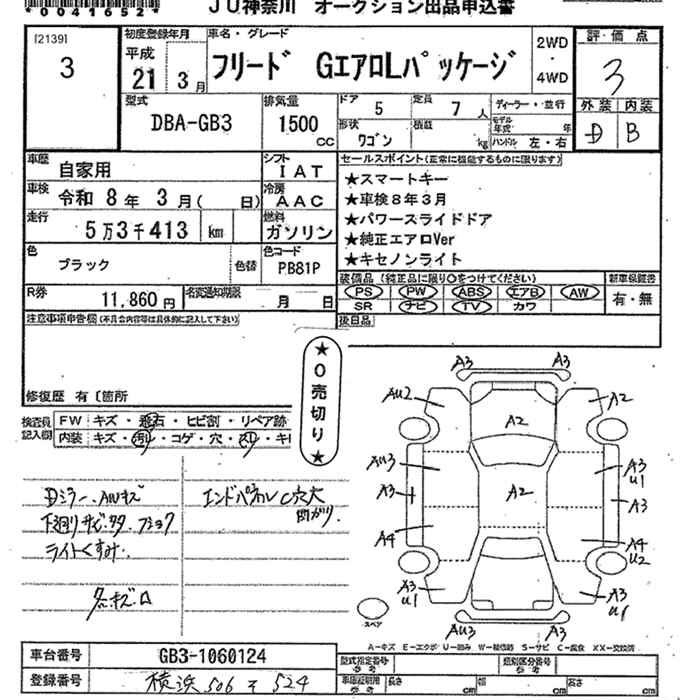 *0041652*
JU神奈川 オークション出品申込書
[2139]
3
初度登録年月
平成
21年 3月
車名・グレード
フリード GエアロLパッケージ
2WD
・
4WD
評価点
3
外装 内装
D B
型式
DBA-GB3
排気量
1500 cc
ドア 5
定員 7 人
形状 ワゴン
積載 kg
ディーラー・並行
モデル年式 年
ハンドル 左・右
車歴 自家用
シフト IAT
車検 令和 8年 3月( 日)
冷房 AAC
走行 5万3千413 km
燃料 ガソリン
色 ブラック
色替
色コード PB81P
R券 11,860円
名変通知期限 月 日
セールスポイント(正常に機能するものに限ります)
★スマートキー
★車検8年3月
★パワースライドドア
★純正エアロVer
★キセノンライト
装備品(純正品に限り○をつけてください)
PS PW ABS エアB AW
SR ナビ TV カワ
新車保証書
有・無
後日品
注意事項申告欄(不具合内容等は具体的に記入して下さい)
修復歴 有〔箇所
★0売切り★
検査員記入欄
FW キズ・飛石・ヒビ割・リペア跡
内装 キズ・汚レ・コゲ・穴・スレ・キレ
Dミラー、AWキズ
下廻りサビ・タタ フショク
ライトくすみ、
各キズ、ロ
エンドパネル C穴大
曲がり、
A3 A3
AU2 A2
A2
AU3 A3
U1
A3 A2 A3
A4 A4
U2
A3
U1
A3
U1
AU3 A3
スペア
A-キズ E-エクボ U-凹み W-補修跡 S-サビ C-腐食 XX-交換済
車台番号 GB3-1060124
登録番号 横浜 506 そ 524
型式指定番号
参考
類別区分番号
参考
車庫証明用
参考
長さ cm
幅 cm
高さ cm